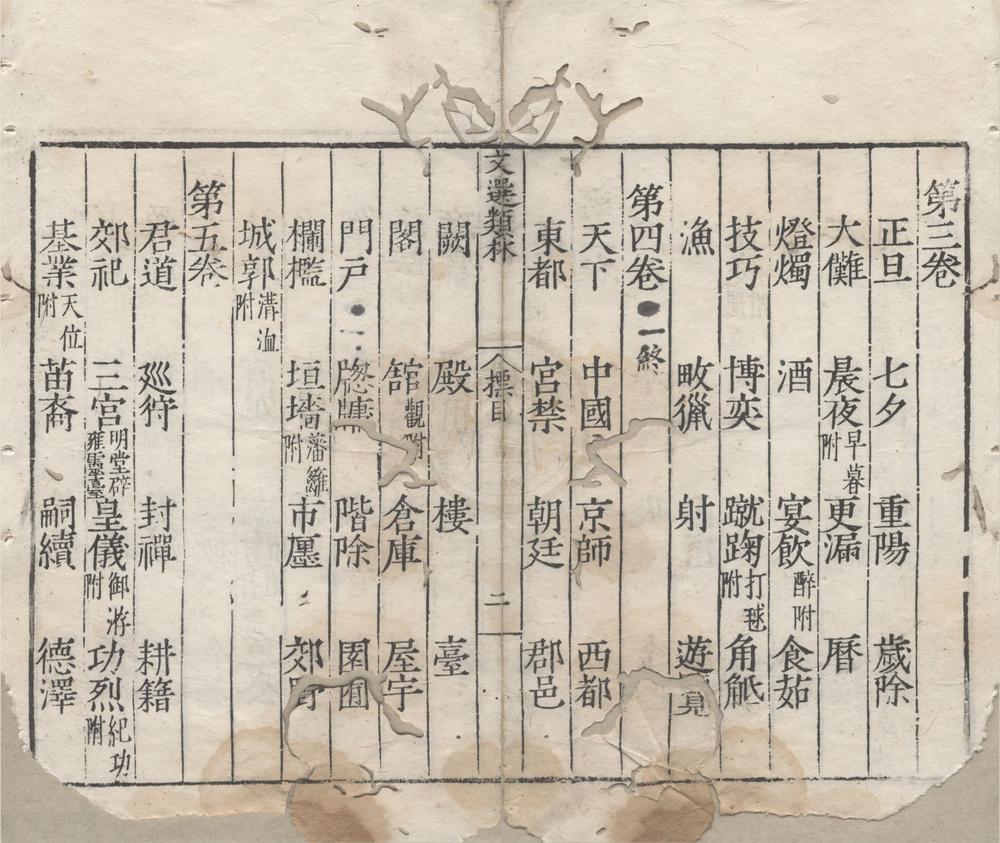 第三卷
正旦 七夕 重陽 歲除
大儺 晨夜早暮附 更漏 曆
燈燭 酒 宴飲醉附 食茹
技巧 博奕 蹴踘打毬附 角觝
漁 畋獵 射 遊覽
第四卷 一終
天下 中國 京師 西都
東都 宮禁 朝廷 郡邑
文選類林 標目 二
闕 殿 樓 臺
閣 舘觀附 倉庫 屋宇
門戸 牕牖 階除 園圃
欄檻 垣墻藩籬附 市廛 郊野
城郭溝洫附
第五卷
君道 廵狩 封禪 耕籍
郊祀 三宮明堂辟雍靈臺 皇儀御游附 功烈紀功附
基業天位附 苗裔 嗣續 德澤